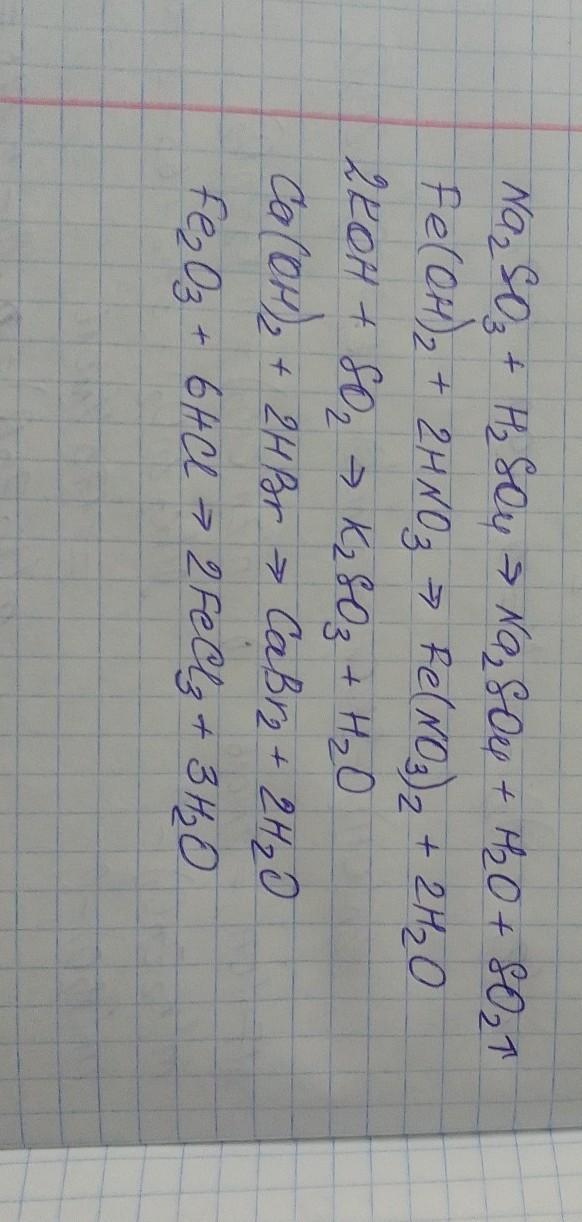 Na₂SO₃ + H₂SO₄ → Na₂SO₄ + H₂O + SO₂↑
Fe(OH)₂ + 2HNO₃ → Fe(NO₃)₂ + 2H₂O
2KOH + SO₂ → K₂SO₃ + H₂O
Ca(OH)₂ + 2HBr → CaBr₂ + 2H₂O
Fe₂O₃ + 6HCl → 2FeCl₃ + 3H₂O